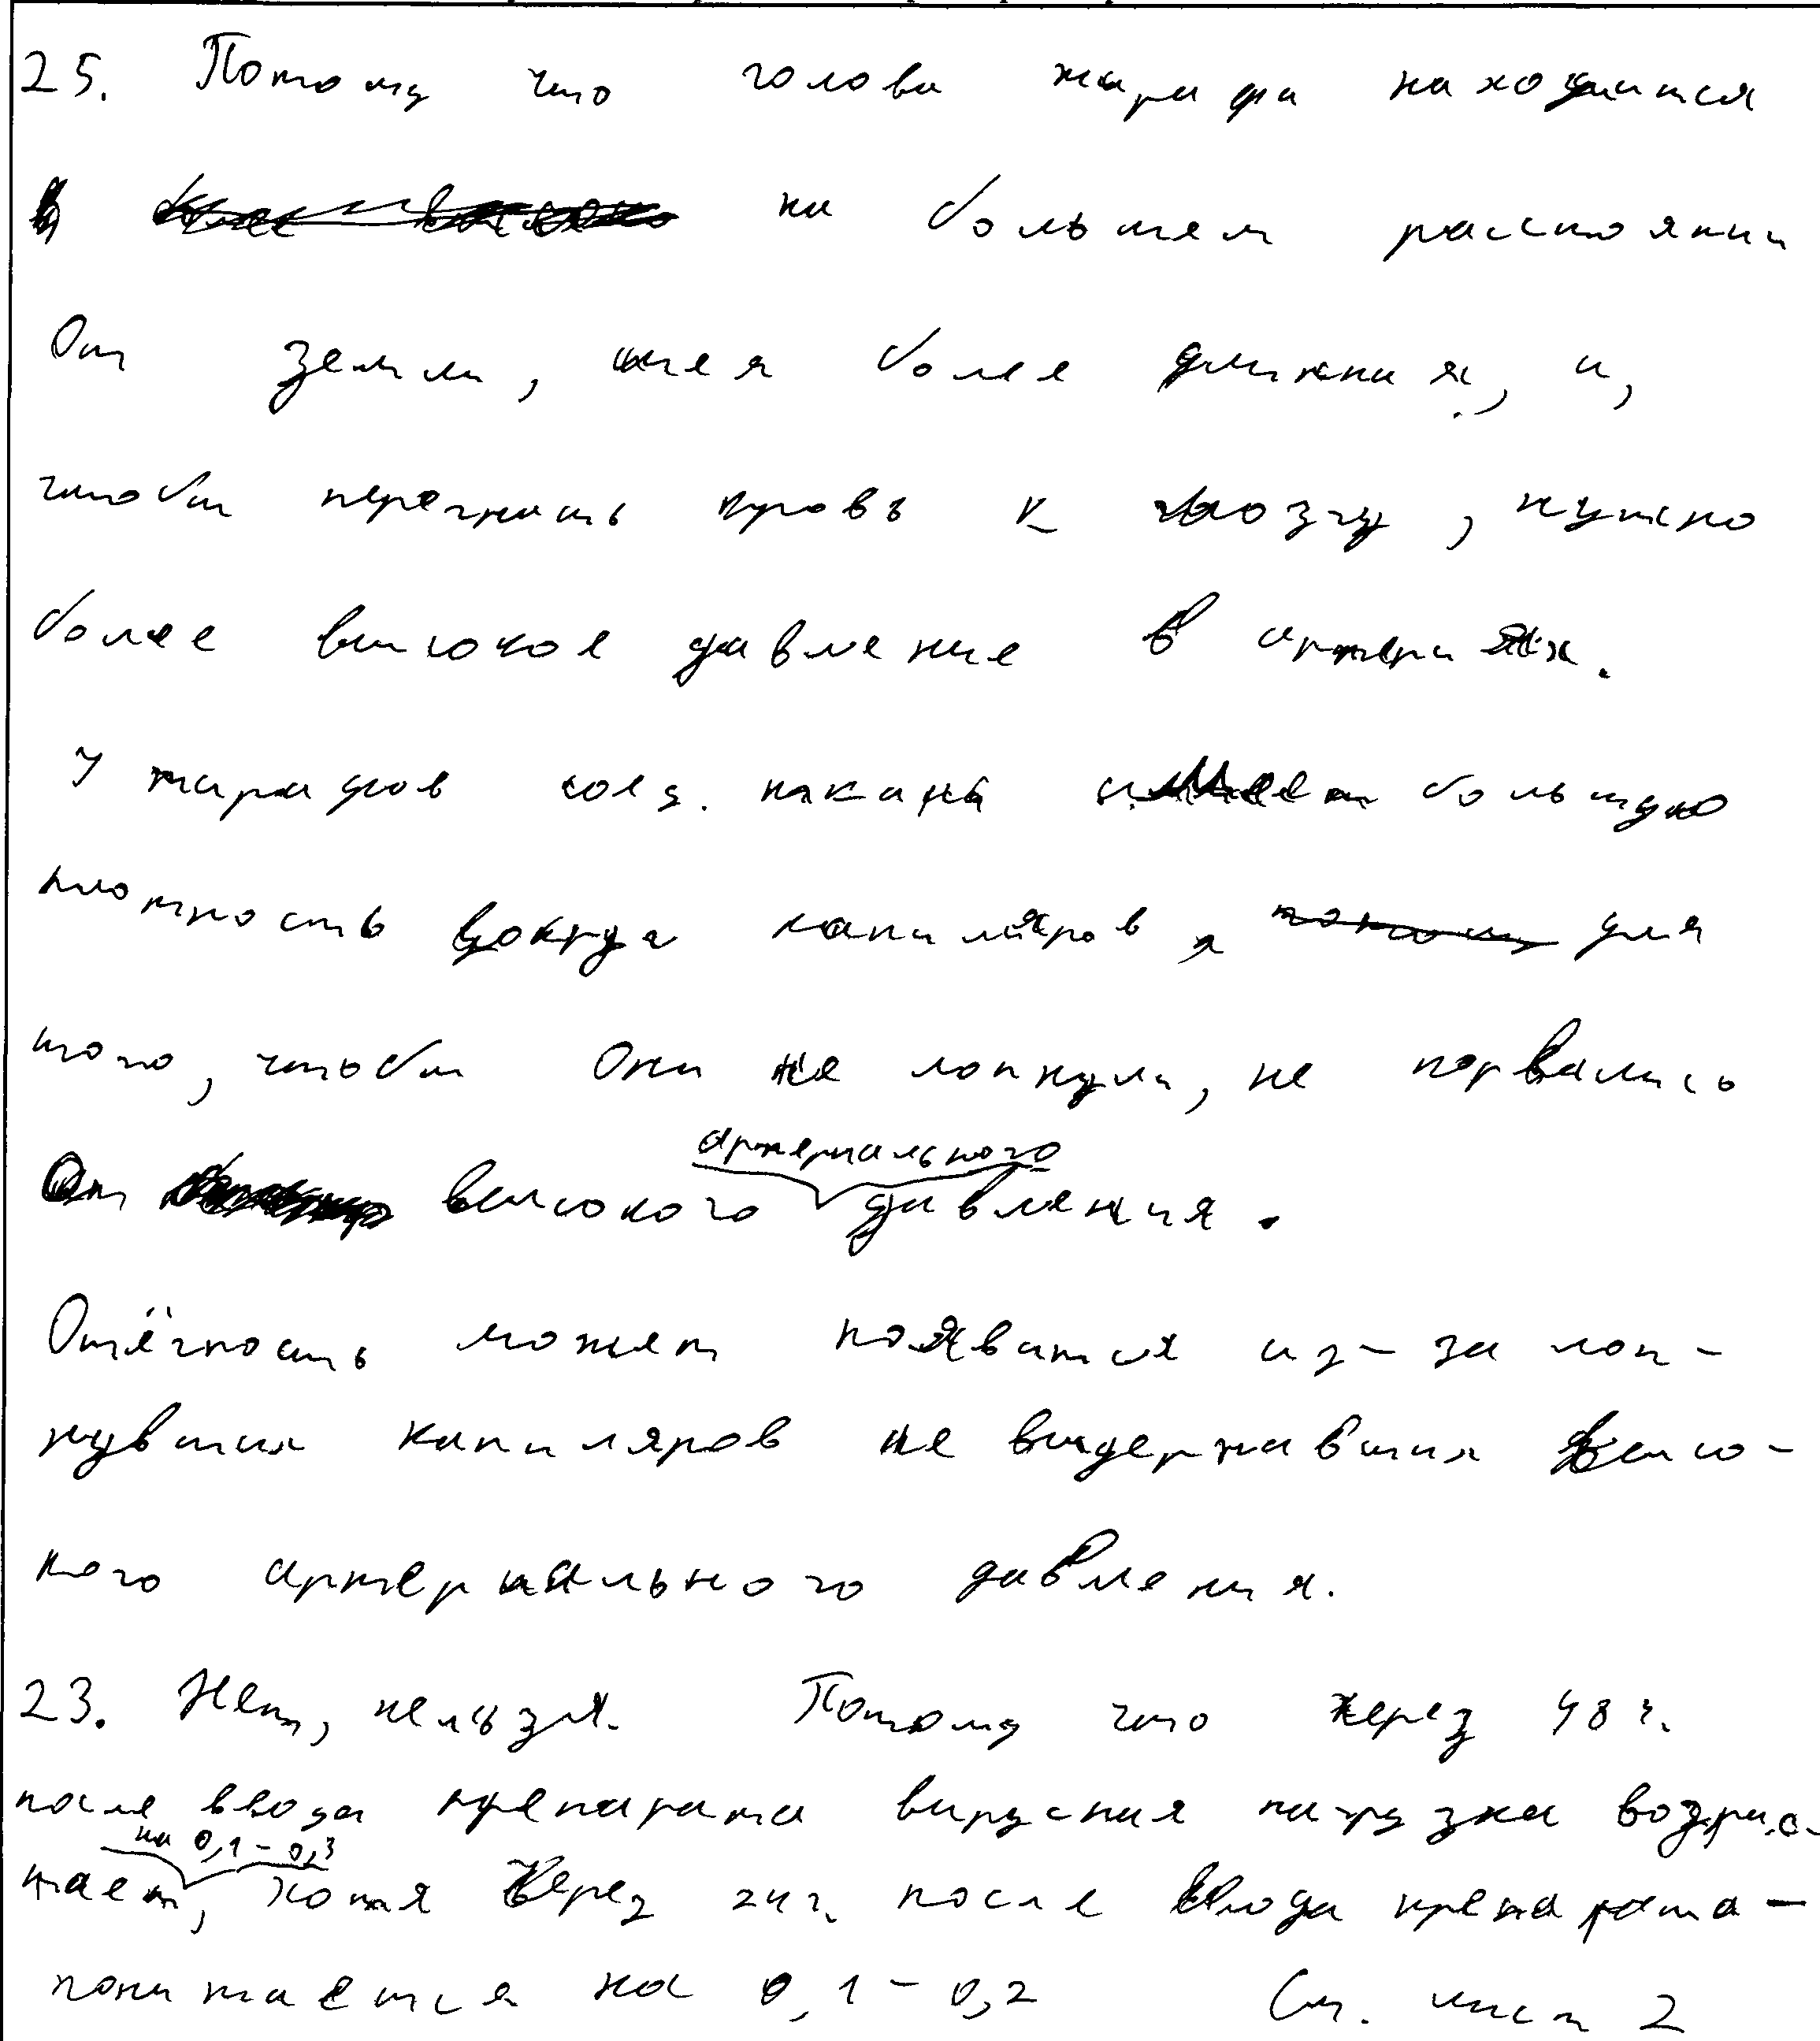 25. Потому что голова жирафа находится
на большем расстоянии
от земли, шея более длинная, и,
чтобы перегнать кровь к мозгу, нужно
более высокое давление в артериях.
У жирафов соед. ткань имеет большую
плотность вокруг капиляров, для
того, чтобы они не лопнули, не порвались
от высокого артериального давления.
Отёчность может появится из-за лоп-
нувших капиляров не выдержавших высо-
кого артериального давления.
23. Нет, нельзя. Потому что через 48 ч.
после ввода препарата вирусная нагрузка возрас-
тает на 0,1-0,3, хотя через 24 ч. после ввода препарата -
понижается на 0,1-0,2 См. лист 2